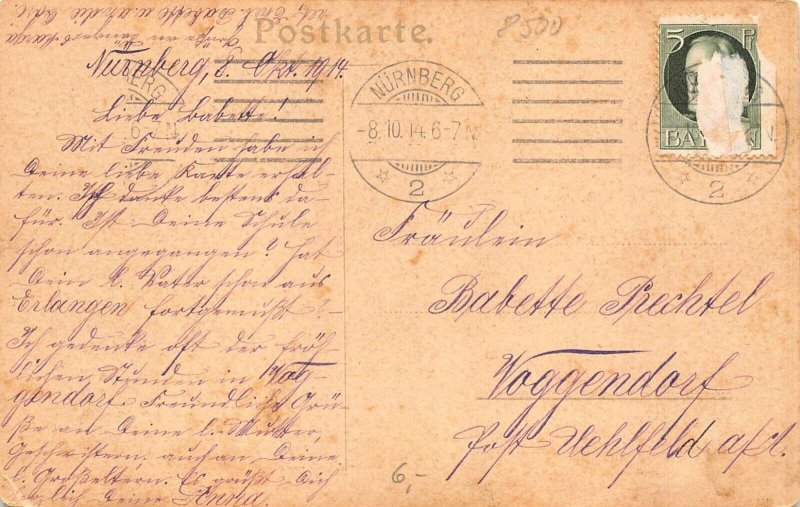 Postkarte.
8500
Nürnberg, 8. Okt. 1914.
Liebe Babette!
Mit Freuden habe ich
Deine liebe Karte erhal-
ten. Ich danke bestens da-
für. Ist Deine Schule
schon angegangen? Hat
Dein l. Vater schon aus
Erlangen fortgemußt?
Ich gedenke oft der fröh-
lichen Stunden in Vog-
gendorf. Freundliche Grü-
ße an Deine l. Mutter,
Geschwistern auch an Deine
l. Großeltern. Es grüßt Dich
herzlich Deine Anna.
NÜRNBERG
-8.10.14. 6-7 N.
2
5 Pf
BAYERN
2
Fräulein
Babette Prechtel
Voggendorf
Post Uehlfeld a/A.
6,-